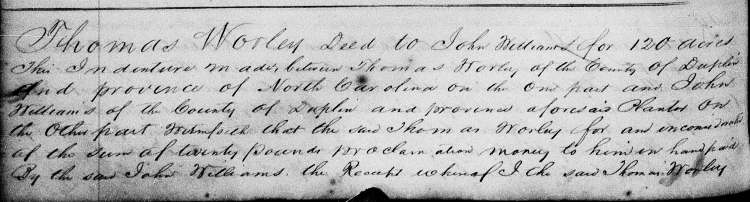 Thomas Worley Deed to John Williams for 120 acres
This Indenture made between Thomas Worley of the County of Duplin
and province of North Carolina on the one part and John
Williams of the County of Duplin and province aforesaid Planter on
the Other part Witnesseth that the said Thomas Worley for and in
of the sum of twenty pounds proclamation money to him in hand paid
By the said John Williams the Receipt whereof I the said Thomas Worley